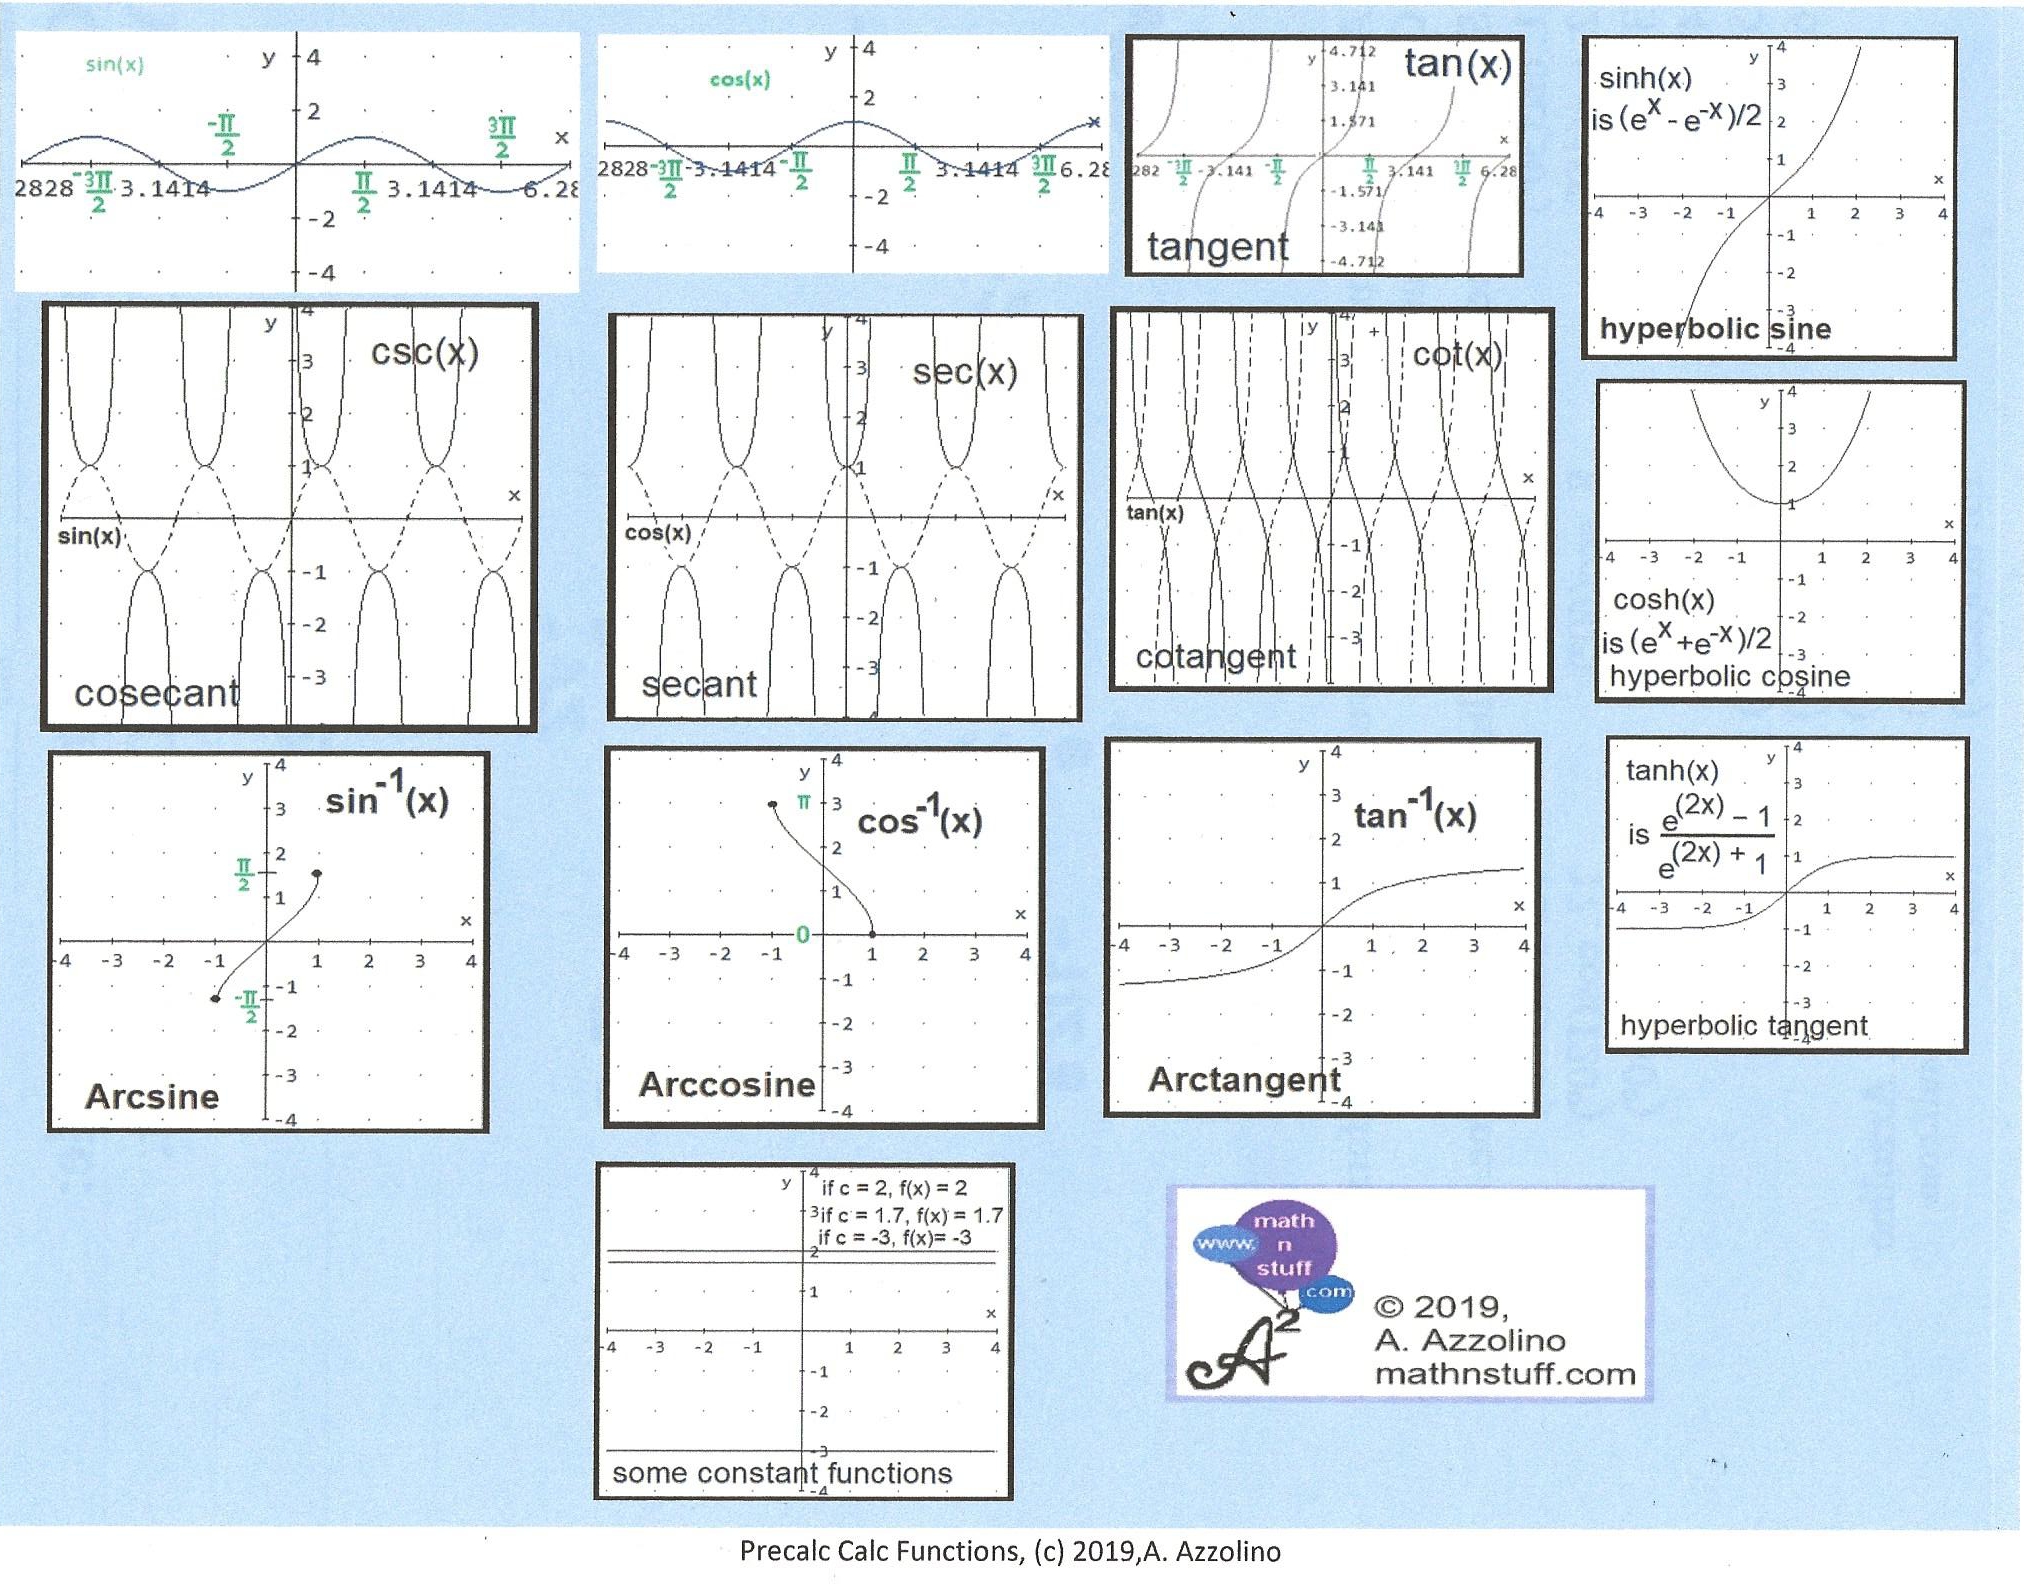 sin(x)
y
4
2
-2
-4
x
2828
-3π/2
3.1414
-π/2
π/2
3.1414
3π/2
6.28
cos(x)
y
4
2
-2
-4
x
2828
-3π/2
-3.1414
-π/2
π/2
3.1414
3π/2
6.28
tan(x)
y
4.712
3.141
1.571
-1.571
-3.141
-4.712
x
282
-3π/2
-3.141
-π/2
π/2
3.141
3π/2
6.28
tangent
sinh(x)
is (e^x - e^-x)/2
y
4
3
2
1
x
-4 -3 -2 -1 1 2 3 4
-1
-2
-3
-4
hyperbolic sine
csc(x)
y
4
3
2
1
x
sin(x)
-1
-2
-3
cosecant
sec(x)
y
4
3
2
1
x
cos(x)
-1
-2
-3
4
secant
cot(x)
y
4
3
2
1
x
tan(x)
-1
-2
-3
cotangent
y
4
3
2
1
x
4 -3 -2 -1 1 2 3 4
-1
-2
-3
-4
cosh(x)
is (e^x +e^-x)/2
hyperbolic cosine
sin^-1(x)
y
4
3
2
π/2
1
x
-4 -3 -2 -1 1 2 3 4
-1
-π/2
-2
-3
-4
Arcsine
cos^-1(x)
y
4
π
3
2
1
0
x
-4 -3 -2 -1 1 2 3 4
-1
-2
-3
-4
Arccosine
tan^-1(x)
y
4
3
2
1
x
-4 -3 -2 -1 1 2 3 4
-1
-2
-3
-4
Arctangent
tanh(x)
is e^(2x) - 1
e^(2x) + 1
y
4
3
2
1
x
-4 -3 -2 -1 1 2 3 4
-1
-2
-3
-4
hyperbolic tangent
y
4
if c = 2, f(x) = 2
3
if c = 1.7, f(x) = 1.7
if c = -3, f(x)= -3
2
1
x
-4 -3 -2 -1 1 2 3 4
-1
-2
-3
-4
some constant functions
www.
math
n
stuff
.com
A²
© 2019,
A. Azzolino
mathnstuff.com
Precalc Calc Functions, (c) 2019,A. Azzolino